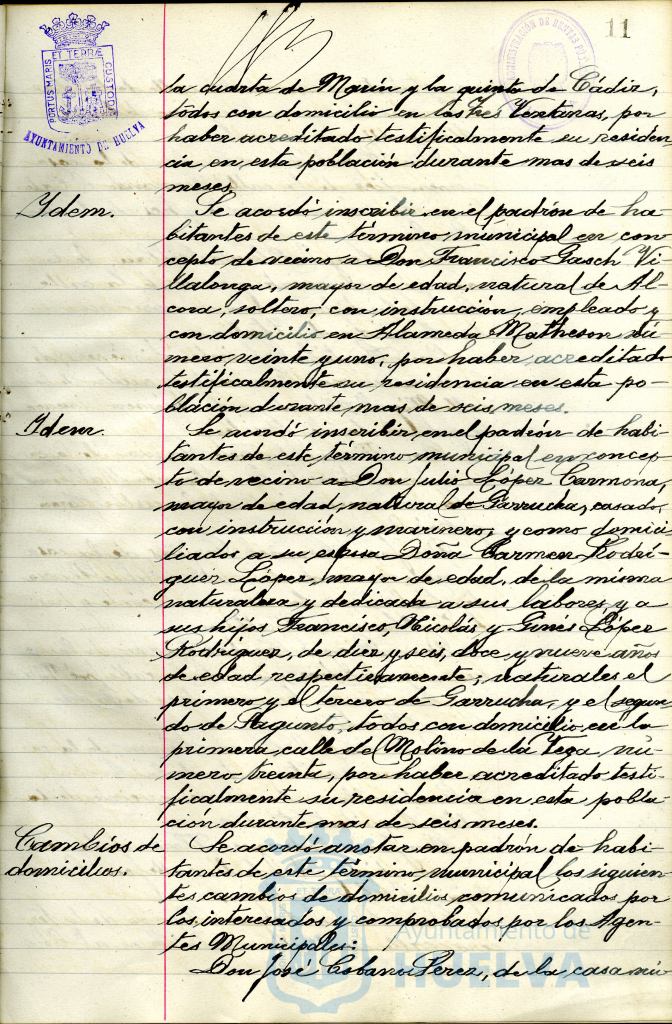 11
PORTUS MARIS ET TERRÆ CUSTODIA
AYUNTAMIENTO DE HUELVA
la cuarta de Marín y la quinta de Cádiz,
todos con domicilio en las Tres Ventanas, por
haber acreditado testificalmente su residen
cia en esta población durante mas de seis
meses.
Ydem.
Se acordó inscribir en el padrón de ha-
bitantes de este término municipal en con
cepto de vecino a Don Francisco Gasch Vi
llalonga, mayor de edad, natural de Al-
cora, soltero, con instrucción, empleado y
con domicilio en Alameda Matheson nú
mero, veinte y uno, por haber acreditado
testificalmente su residencia en esta po-
blación durante mas de seis meses.
Ydem.
Se acordó inscribir en el padrón de habi-
tantes de este término municipal en concep
to de vecino a Don Julio López Carmona,
mayor de edad, natural de Garrucha, casado,
con instrucción y marinero, y como domici-
liados a su esposa Doña Carmen Rodrí-
guez López, mayor de edad, de la misma
naturaleza y dedicada a sus labores, y a
sus hijos Francisco, Nicolás y Ginés López
Rodríguez, de diez y seis, doce y nueve años
de edad respectivamente; naturales el
primero y el tercero de Garrucha, y el segun
do de Sagunto, todos con domicilio en la
primera calle de Molino de la Vega, nú-
mero, treinta, por haber acreditado testi-
ficalmente su residencia en esta pobla-
ción durante mas de seis meses.
Cambios de
domicilios.
Se acordó anotar en padrón de habi-
tantes de este término municipal los siguien
tes cambios de domicilios comunicados por
los interesados y comprobados por los Agen-
tes Municipales:
Don José Cobano Pérez, de la casa nú-
Ayuntamiento de
HUELVA